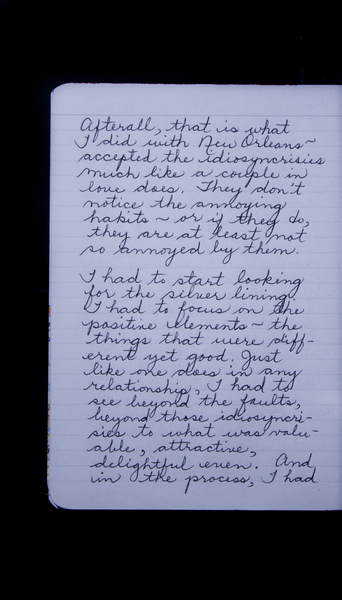 Afterall, that is what
I did with New Orleans~
accepted the idiosyncrisies
much like a couple in
love does. They don't
notice the annoying
habits ~ or if they do,
they are at least not
so annoyed by them.
I had to start looking
for the silver lining.
I had to focus on the
positive elements ~ the
things that were diff-
erent yet good. Just
like one does in any
relationship, I had to
see beyond the faults,
beyond those idiosyncri-
sies to what was valu-
able, attractive,
delightful even. And
in the process, I had